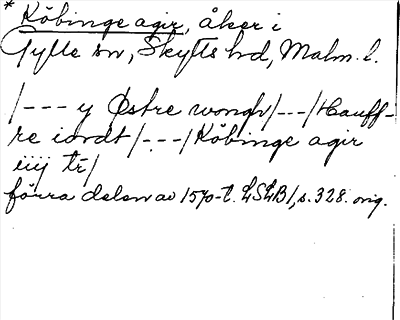 * Köbinge agir, åker i
Gylle sn, Skytts hd, Malm. l.
/--- y Østre wongh/---/Hauff-
re iordt/---/Köbinge agir
iiij tr/
förra delen av 1570-t. LSLB1, s. 328. orig.